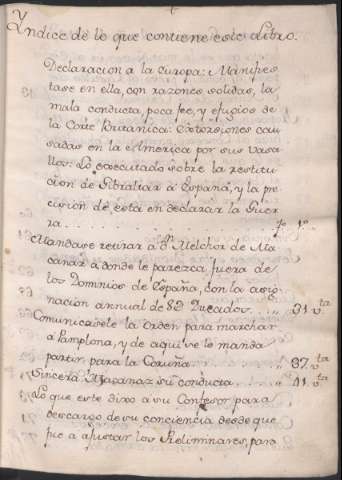 Yndice de lo que contiene este Libro.
Declaracion a la Europa: Manifies
tase en ella, con razones solidas, la
mala conducta, poca fee, y efugios de
la Corte Britanica: Extorsiones cau
sadas en la America por sus Vasa
llos: Lo executado sobre la restitu
cion de Gibraltar à España, y la pre
cision de esta en declarar la Guer
ra . . . . . . . . . . . . . . . . . . 1.º
Mandase retirar a Dn. Melchor de Ma
canàz à donde le parezca fuera de
los Dominios de España, con la asig
nacion annual de 8@ Ducados . . . 31 vta
Comunicasele la Orden para marchar
a Pamplona, y de aqui se le manda
partir para la Coruña . . . . . 37. vta
Sincera Macanaz su conducta . . . . 41. vta
Lo que este dixo a su Confesor para
descargo de su conciencia desde que
fue a ajustar los Preliminares, para